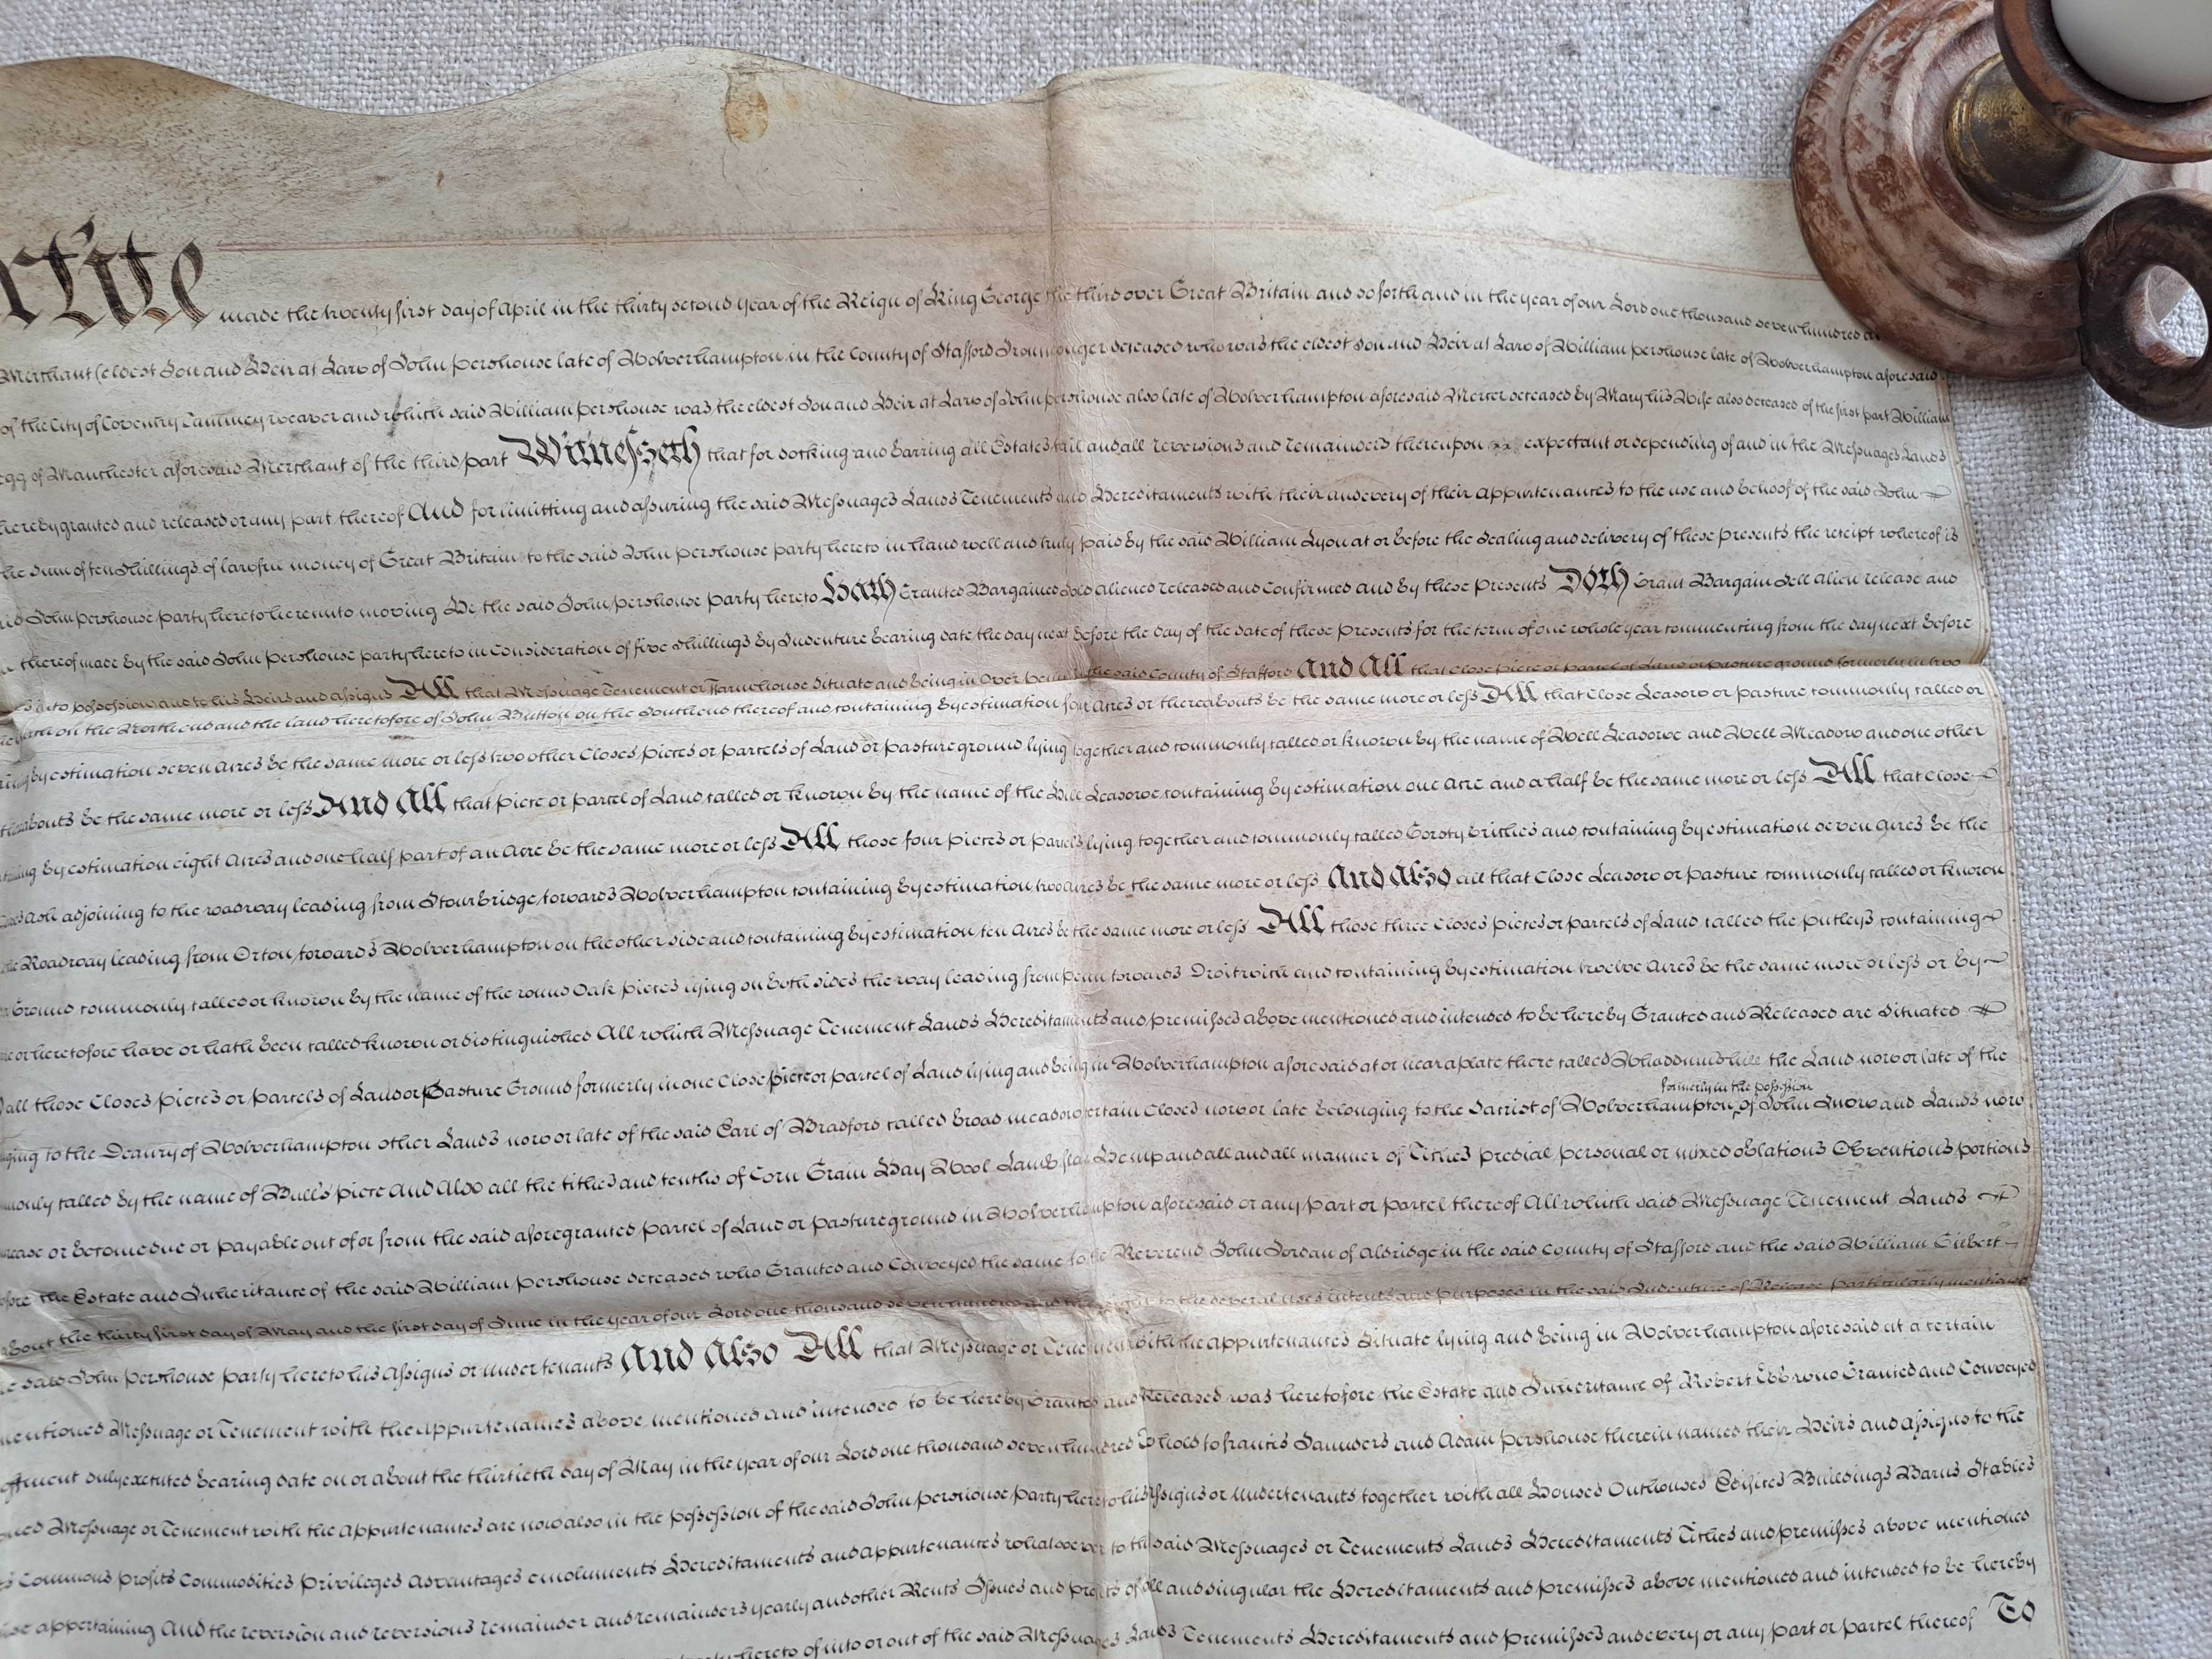 rtite made the twenty first day of April in the thirty second year of the Reign of King George the third over Great Britain and so forth and in the year of our Lord one thousand seven hundred
Merchant (eldest Son and Heir at Law of John Pershouse late of Wolverhampton in the County of Stafford Ironmonger deceased who was the eldest Son and Heir at Law of William Pershouse late of Wolverhampton aforesaid
of the City of Coventry Tammey weaver and which said William Pershouse was the eldest Son and Heir at Law of John Pershouse also late of Wolverhampton aforesaid Mercer deceased by Mary his Wife also deceased of the first part William
egg of Manchester aforesaid Merchant of the third part Witnesseth that for docking and barring all Estates tail and all reversions and remainders thereupon expectant or depending of and in the Messuages Lands
hereby granted and released or any part thereof And for limitting and assuring the said Messuages Lands Tenements and Hereditaments with their and every of their appurtenances to the use and behoof of the said John
the sum of ten shillings of lawful money of Great Britain to the said John Pershouse party hereto in hand well and truly paid by the said William Lyon at or before the Sealing and delivery of these presents the receipt whereof is
John Pershouse party hereto hereunto moving He the said John Pershouse party hereto Hath Granted Bargained Sold aliened released and Confirmed and by these Presents Doth Grant Bargain Sell alien release and
thereof made by the said John Pershouse party hereto in Consideration of five shillings by Indenture bearing date the day next before the day of the date of these Presents for the term of one whole year commencing from the day next before
into possession and to his Heirs and assigns All that Messuage Tenement or Farmhouse Situate and being in Over Penn in the said County of Stafford And All that Close piece or parcel of Land or pasture ground formerly in two
on the North end and the land heretofore of John Button on the South end thereof and containing by estimation four Acres or thereabouts be the same more or less All that Close Leasow or pasture commonly called or
by estimation seven Acres be the same more or less two other Closes pieces or parcels of Land or pasture ground lying together and commonly called or known by the name of Well Leasowe and Well Meadow and one other
thereabouts be the same more or less And All that piece or parcel of Land called or known by the name of the Hill Leasowe containing by estimation one Acre and a half be the same more or less All that Close
by estimation eight Acres and one half part of an Acre be the same more or less All those four pieces or parcels lying together and commonly called Gorsty Brithes and containing by estimation seven Acres be the
adjoining to the roadway leading from Stourbridge towards Wolverhampton containing by estimation two Acres be the same more or less And Also all that Close Leasow or pasture commonly called or known
the Roadway leading from Orton towards Wolverhampton on the other side and containing by estimation ten Acres be the same more or less All those three Closes pieces or parcels of Land called the Putleys containing
Ground commonly called or known by the name of the round Oak pieces lying on both sides the way leading from Penn towards Droitwich and containing by estimation twelve Acres be the same more or less or by
or heretofore have or hath been called known or distinguished All which Messuage Tenement Lands Hereditaments and premisses above mentioned and intended to be hereby Granted and Released are Situated
all those Closes pieces or parcels of Land or Pasture Ground formerly in one Close piece or parcel of Land lying and being in Wolverhampton aforesaid at or near a place there called the Land now or late of the
formerly in the possession
to the Deanry of Wolverhampton other Lands now or late of the said Earl of Bradford called Broad meadow certain Closes now or late belonging to the Sacrist of Wolverhampton of John Snow and Lands now
only called by the name of Bull's piece And Also all the tithes and tenths of Corn Grain Hay Wool Lamb flax Hemp and all and all manner of Tithes predial personal or mixed oblations Obventions portions
or become due or payable out of or from the said aforegranted parcel of Land or pasture ground in Wolverhampton aforesaid or any part or parcel thereof All which said Messuage Tenement Lands
the Estate and Inheritance of the said William Pershouse deceased who Granted and Conveyed the same to the Reverend John Jordan of Aldridge in the said County of Stafford and the said William Gibert
about the thirty first day of May and the first day of June in the year of our Lord one thousand seven hundred and to the several uses intents and purposes in the said Indenture of Release particularly mentioned
said John Pershouse party hereto his Assigns or undertenants And Also All that Messuage or Tenement with the appurtenances Situate lying and being in Wolverhampton aforesaid at a certain
mentioned Messuage or Tenement with the appurtenances above mentioned and intended to be hereby Granted and Released was heretofore the Estate and Inheritance of Robert Ebb who Granted and Conveyed
duly executed bearing date on or about the thirtieth day of May in the year of our Lord one thousand seven hundred To hold to Francis Saunders and Adam Pershouse therein named their Heirs and assigns to the
Messuage or Tenement with the appurtenances are now also in the possession of the said John Pershouse party hereto his Assigns or Undertenants together with all Houses Outhouses Edifices Buildings Barns Stables
Commons profits Commodities privileges advantages emoluments Hereditaments and appurtenances whatsoever to the said Messuages or Tenements Lands Hereditaments Tithes and premisses above mentioned
appertaining And the reversion and reversions remainder and remainders yearly and other Rents Issues and profits of all and singular the Hereditaments and premisses above mentioned and intended to be hereby
hereto of into or out of the said Messuages Lands Tenements Hereditaments and premisses and every or any part or parcel thereof To